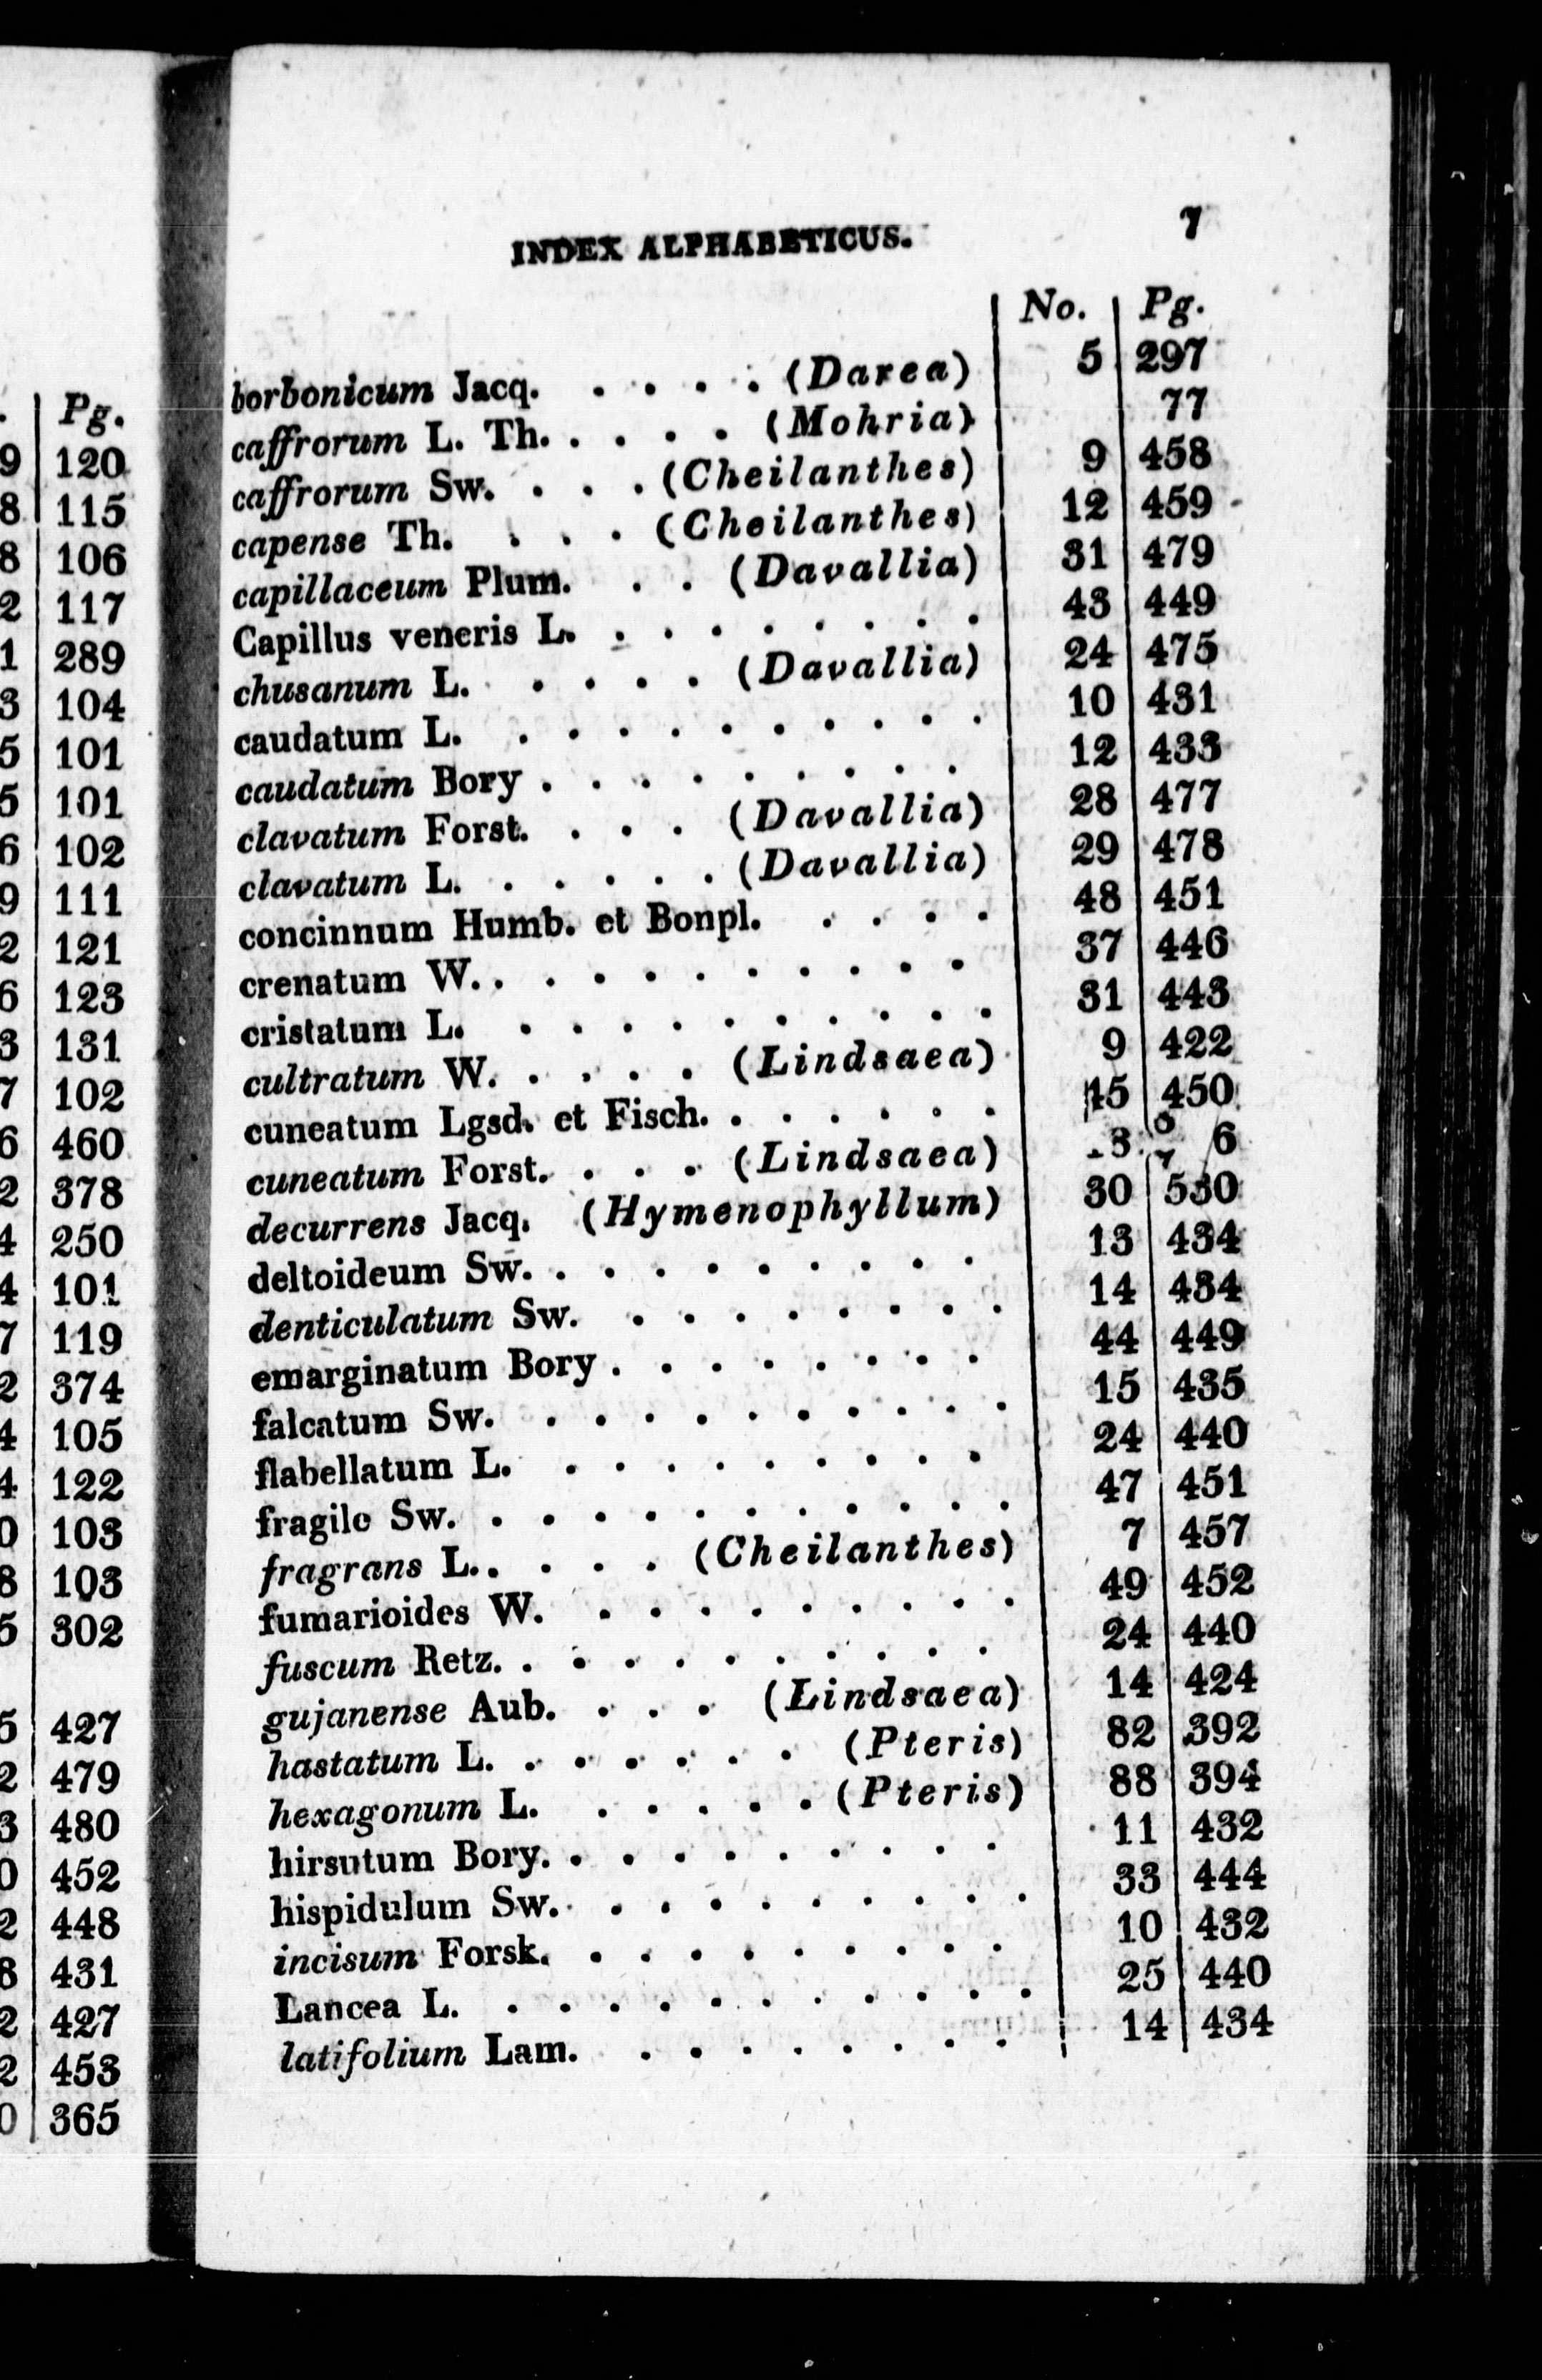 Pg.
9 120
8 115
8 106
2 117
1 289
3 104
5 101
5 101
6 102
9 111
2 121
6 123
3 131
7 102
6 460
2 378
4 250
4 101
7 119
2 374
4 105
4 122
0 103
8 103
5 302
5 427
2 479
3 480
0 452
2 448
8 431
2 427
2 453
0 365
INDEX ALPHABETICUS. 7
No. Pg.
borbonicum Jacq. . . . . (Darea) 5 297
caffrorum L. Th. . . . . (Mohria) 77
caffrorum Sw. . . . (Cheilanthes) 9 458
capense Th. . . . (Cheilanthes) 12 459
capillaceum Plum. . . (Davallia) 31 479
Capillus veneris L. . . . . . . . . 43 449
chusanum L. . . . . (Davallia) 24 475
caudatum L. . . . . . . . . . . 10 431
caudatum Bory . . . . . . . . . 12 433
clavatum Forst. . . . (Davallia) 28 477
clavatum L. . . . . . (Davallia) 29 478
concinnum Humb. et Bonpl. . . . . 48 451
crenatum W. . . . . . . . . . . 37 446
cristatum L. . . . . . . . . . . 31 443
cultratum W. . . . . (Lindsaea) 9 422
cuneatum Lgsd. et Fisch. . . . . . . 45 450
cuneatum Forst. . . . (Lindsaea)
decurrens Jacq. (Hymenophyllum) 30 530
deltoideum Sw. . . . . . . . . . 13 434
denticulatum Sw. . . . . . . . . 14 434
emarginatum Bory . . . . . . . . 44 449
falcatum Sw. . . . . . . . . . . 15 435
flabellatum L. . . . . . . . . . 24 440
fragile Sw. . . . . . . . . . . . 47 451
fragrans L. . . . . (Cheilanthes) 7 457
fumarioides W. . . . . . . . . . 49 452
fuscum Retz. . . . . . . . . . . 24 440
gujanense Aub. . . . (Lindsaea) 14 424
hastatum L. . . . . . . (Pteris) 82 392
hexagonum L. . . . . . (Pteris) 88 394
hirsutum Bory. . . . . . . . . . 11 432
hispidulum Sw. . . . . . . . . . 33 444
incisum Forsk. . . . . . . . . . 10 432
Lancea L. . . . . . . . . . . . 25 440
latifolium Lam. . . . . . . . . 14 434